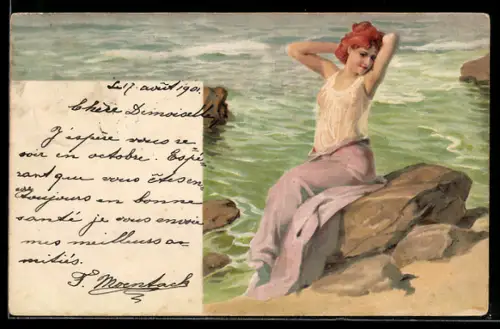 Le 17 août 190.
Chère Dimoiselle,
J'espère vous re
voir in octobre. Espé
rant que vous êtes en
toujours en bonne
santé je vous envoie
mes meilleurs a
mitiés.
F. Moentack